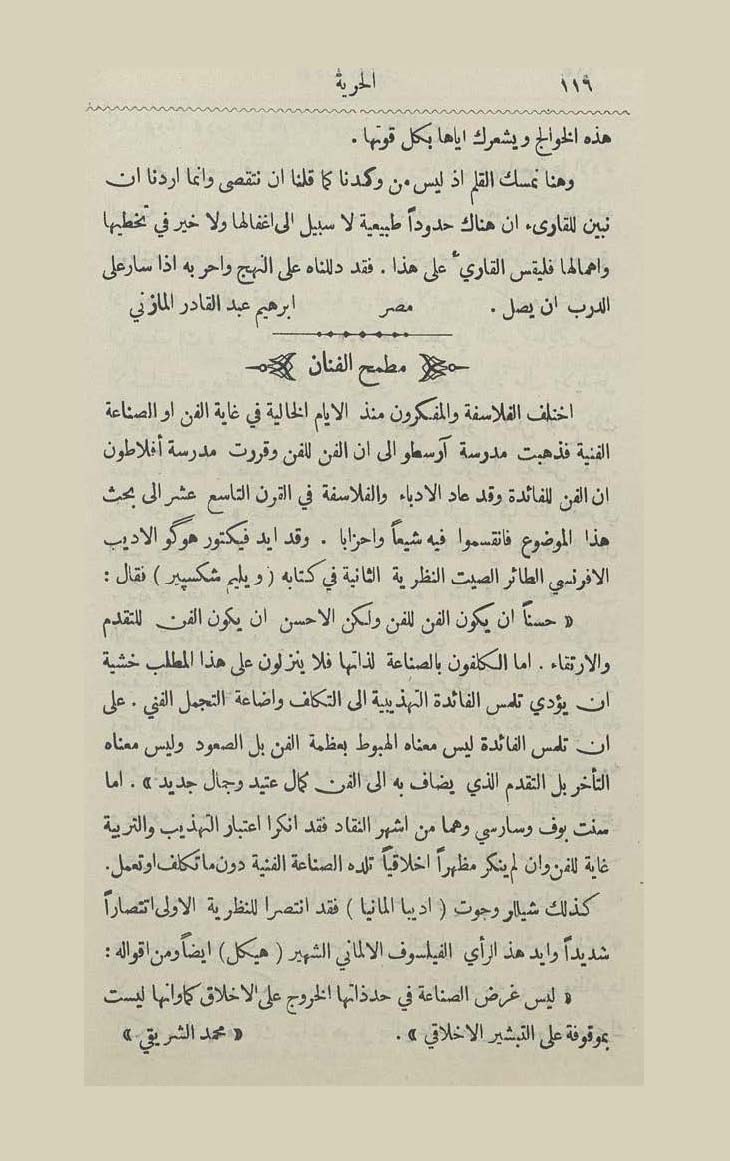 ١١٩ الحرية
هذه الخوالج ويشعرك اياها بكل قوتها .
وهنا نمسك القلم اذ ليس من وكدنا كما قلنا ان نتقصى وانما اردنا ان
نبين للقارىء ان هناك حدوداً طبيعية لا سبيل الى اغفالها ولا خير في تخطيها
واهمالها فليقس القاريء على هذا . فقد دللناه على النهج واحر به اذا سار على
الدرب ان يصل . مصر ابرهيم عبد القادر المازني
مطمح الفنان
اختلف الفلاسفة والمفكرون منذ الايام الخالية في غاية الفن او الصناعة
الفنية فذهبت مدرسة آرسطو الى ان الفن للفن وقررت مدرسة أفلاطون
ان الفن للفائدة وقد عاد الادباء والفلاسفة في القرن التاسع عشر الى بحث
هذا الموضوع فانقسموا فيه شيعاً واحزابا . وقد ايد فيكتور هوگو الاديب
الافرنسي الطائر الصيت النظرية الثانية في كتابه ( ويليم شكسپير ) فقال :
« حسناً ان يكون الفن للفن ولكن الاحسن ان يكون الفن للتقدم
والارتقاء . اما الكلفون بالصناعة لذاتها فلا ينزلون على هذا المطلب خشية
ان يؤدي تلمس الفائدة التهذيبية الى التكلف واضاعة التجمل الفني . على
ان تلمس الفائدة ليس معناه الهبوط بعظمة الفن بل الصعود وليس معناه
التأخر بل التقدم الذي يضاف به الى الفن كمال عتيد وجمال جديد » . اما
سنت بوف وسارسي وهما من اشهر النقاد فقد انكرا اعتبار التهذيب والتربية
غاية للفن وان لم ينكر مظهراً اخلاقياً تلده الصناعة الفنية دون ما تكلف او تعمل .
كذلك شيللر وجوت ( اديبا المانيا ) فقد انتصرا للنظرية الاولى انتصاراً
شديداً وايد هذ الرأي الفيلسوف الالماني الشهير ( هيكل ) ايضاً ومن اقواله :
« ليس غرض الصناعة في حد ذاتها الخروج على الاخلاق كما وانها ليست
بموقوفة على التبشير الاخلاقي » . « محمد الشريقي »